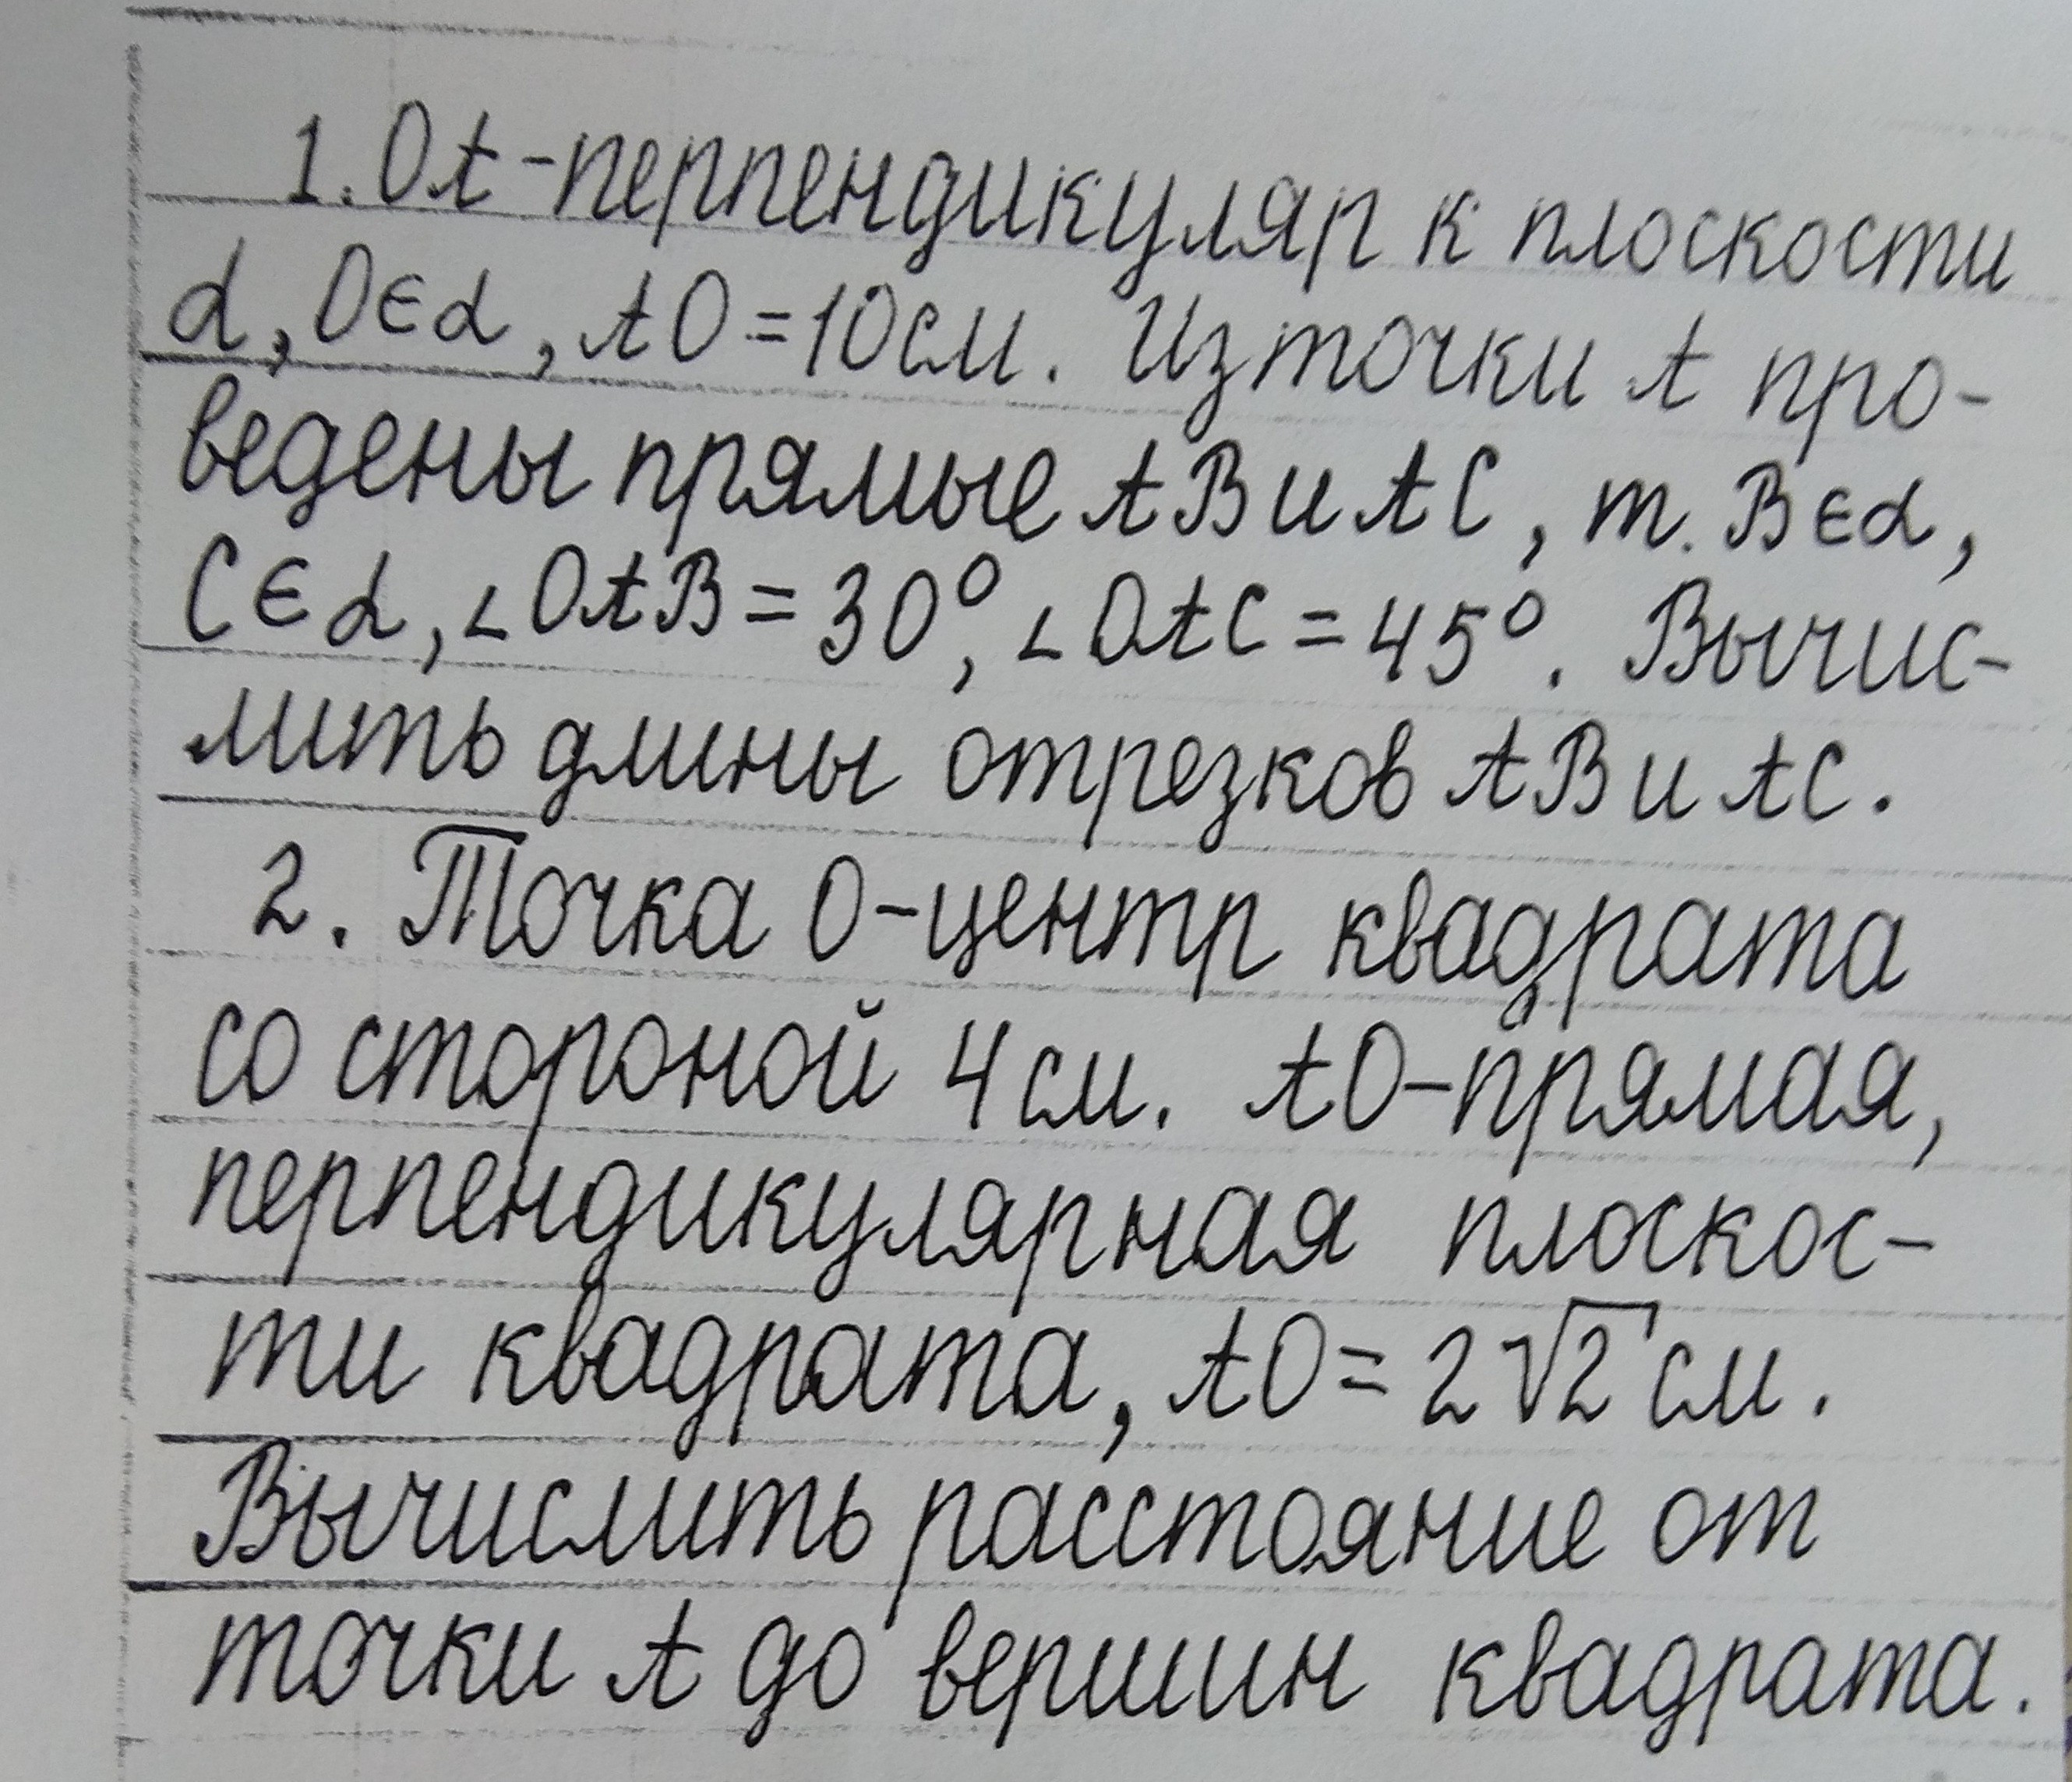 1. ОА-перпендикуляр к плоскости
α, О∈α, АО=10см. Из точки А про-
ведены прямые АВ и АС, т. В∈α,
С∈α, ∠ОАВ=30°, ∠ОАС=45°. Вычис-
лить длины отрезков АВ и АС.
2. Точка О-центр квадрата
со стороной 4 см. АО-прямая,
перпендикулярная плоскос-
ти квадрата, АО=2√2 см.
Вычислить расстояние от
точки А до вершин квадрата.